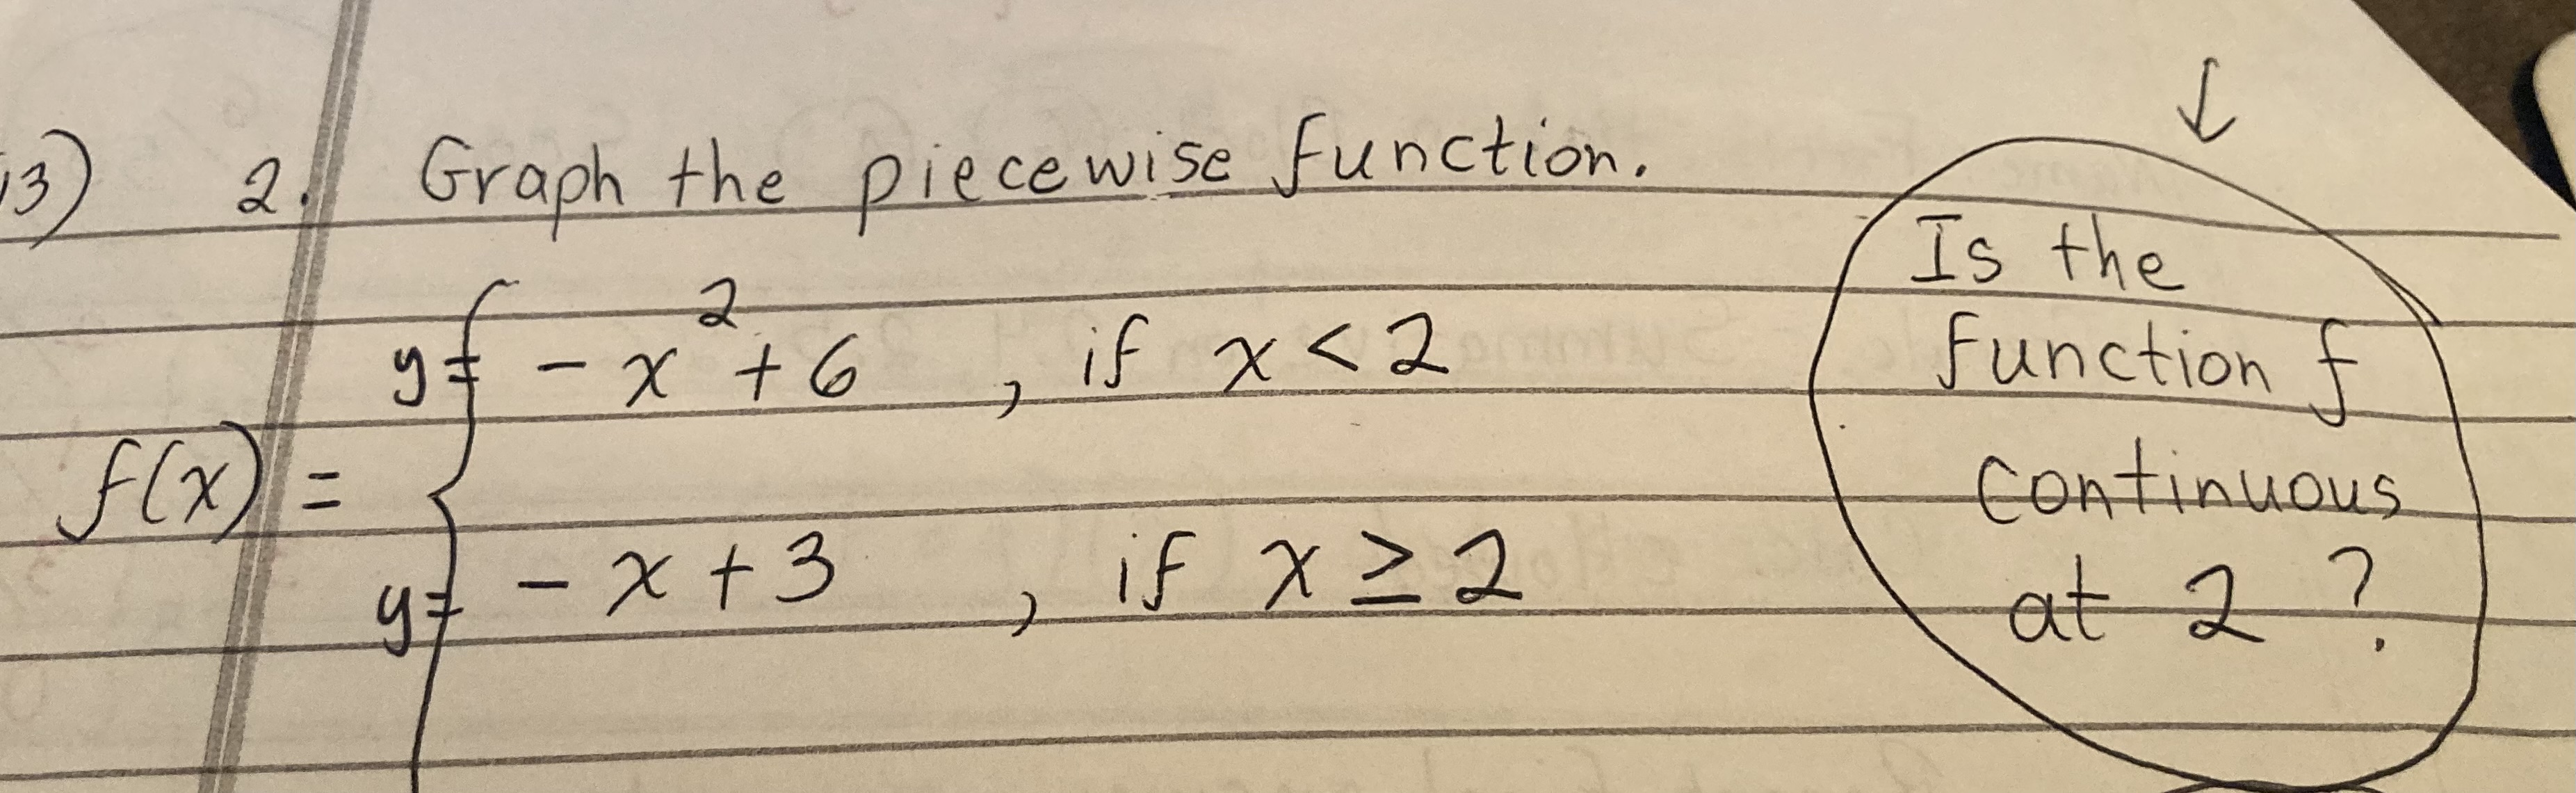 13) 2. Graph the piecewise function.
f(x) = { y= -x² + 6 , if x < 2
y= -x + 3 , if x ≥ 2
↓
Is the
function f
continuous
at 2 ?